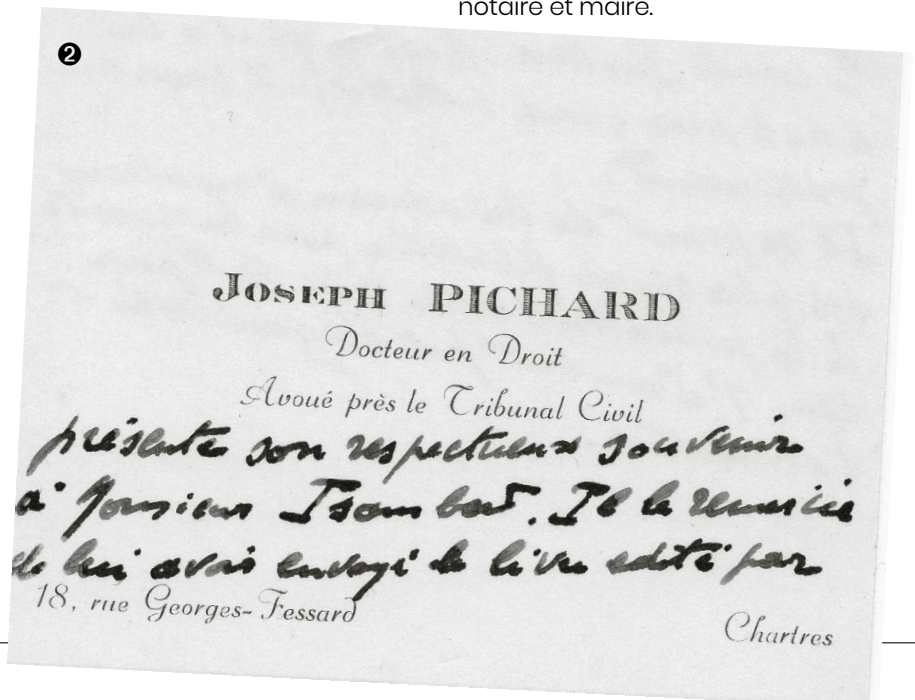 notaire et maire.
2
JOSEPH PICHARD
Docteur en Droit
Avoué près le Tribunal Civil
présente son respectueux souvenir
à Monsieur Isambert. Il le remercie
de lui avoir envoyé le livre edité par
18, rue Georges-Fessard
Chartres